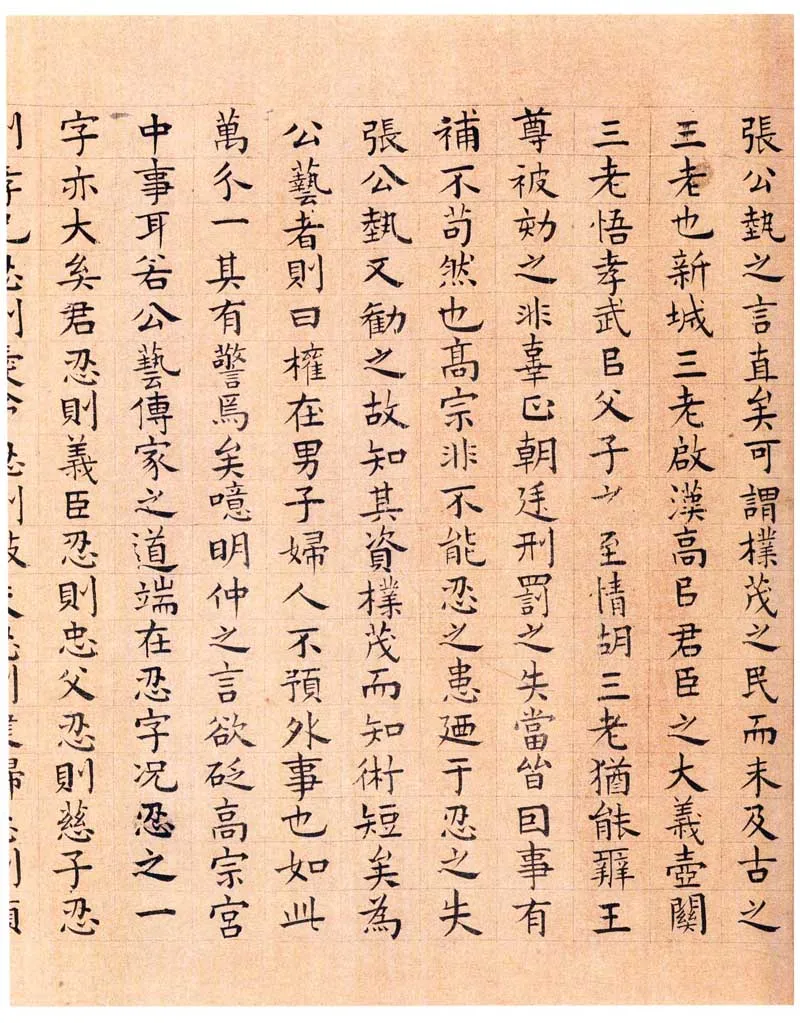 張公埶之言直矣可謂樸茂之民而未及古之
三老也新城三老啟漢高㠯君臣之大義壺關
三老悟孝武㠯父子之至情胡三老猶能辯王
尊被劾之非辜正朝廷刑罰之失當皆因事有
補不苟然也高宗非不能忍之患廼于忍之失
張公埶又勸之故知其資樸茂而知術短矣為
公藝者則曰權在男子婦人不預外事也如此
萬分一其有警焉矣噫明仲之言欲砭高宗宮
中事耳若公藝傳家之道端在忍字况忍之一
字亦大矣君忍則義臣忍則忠父忍則慈子忍